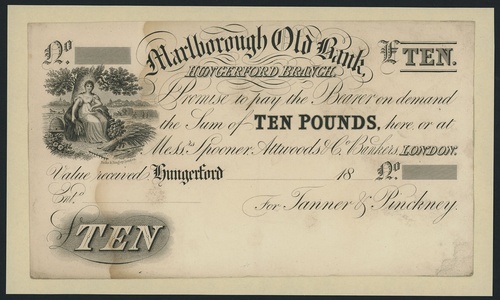 No
Marlborough Old Bank,
£TEN.
HUNGERFORD BRANCH.
I Promise to pay the Bearer on demand
the Sum of TEN POUNDS, here, or at
Messrs Spooner, Attwoods & Co. Bankers, LONDON.
Value received Hungerford 18 No
Ent.d
For Tanner & Pinckney.
£TEN